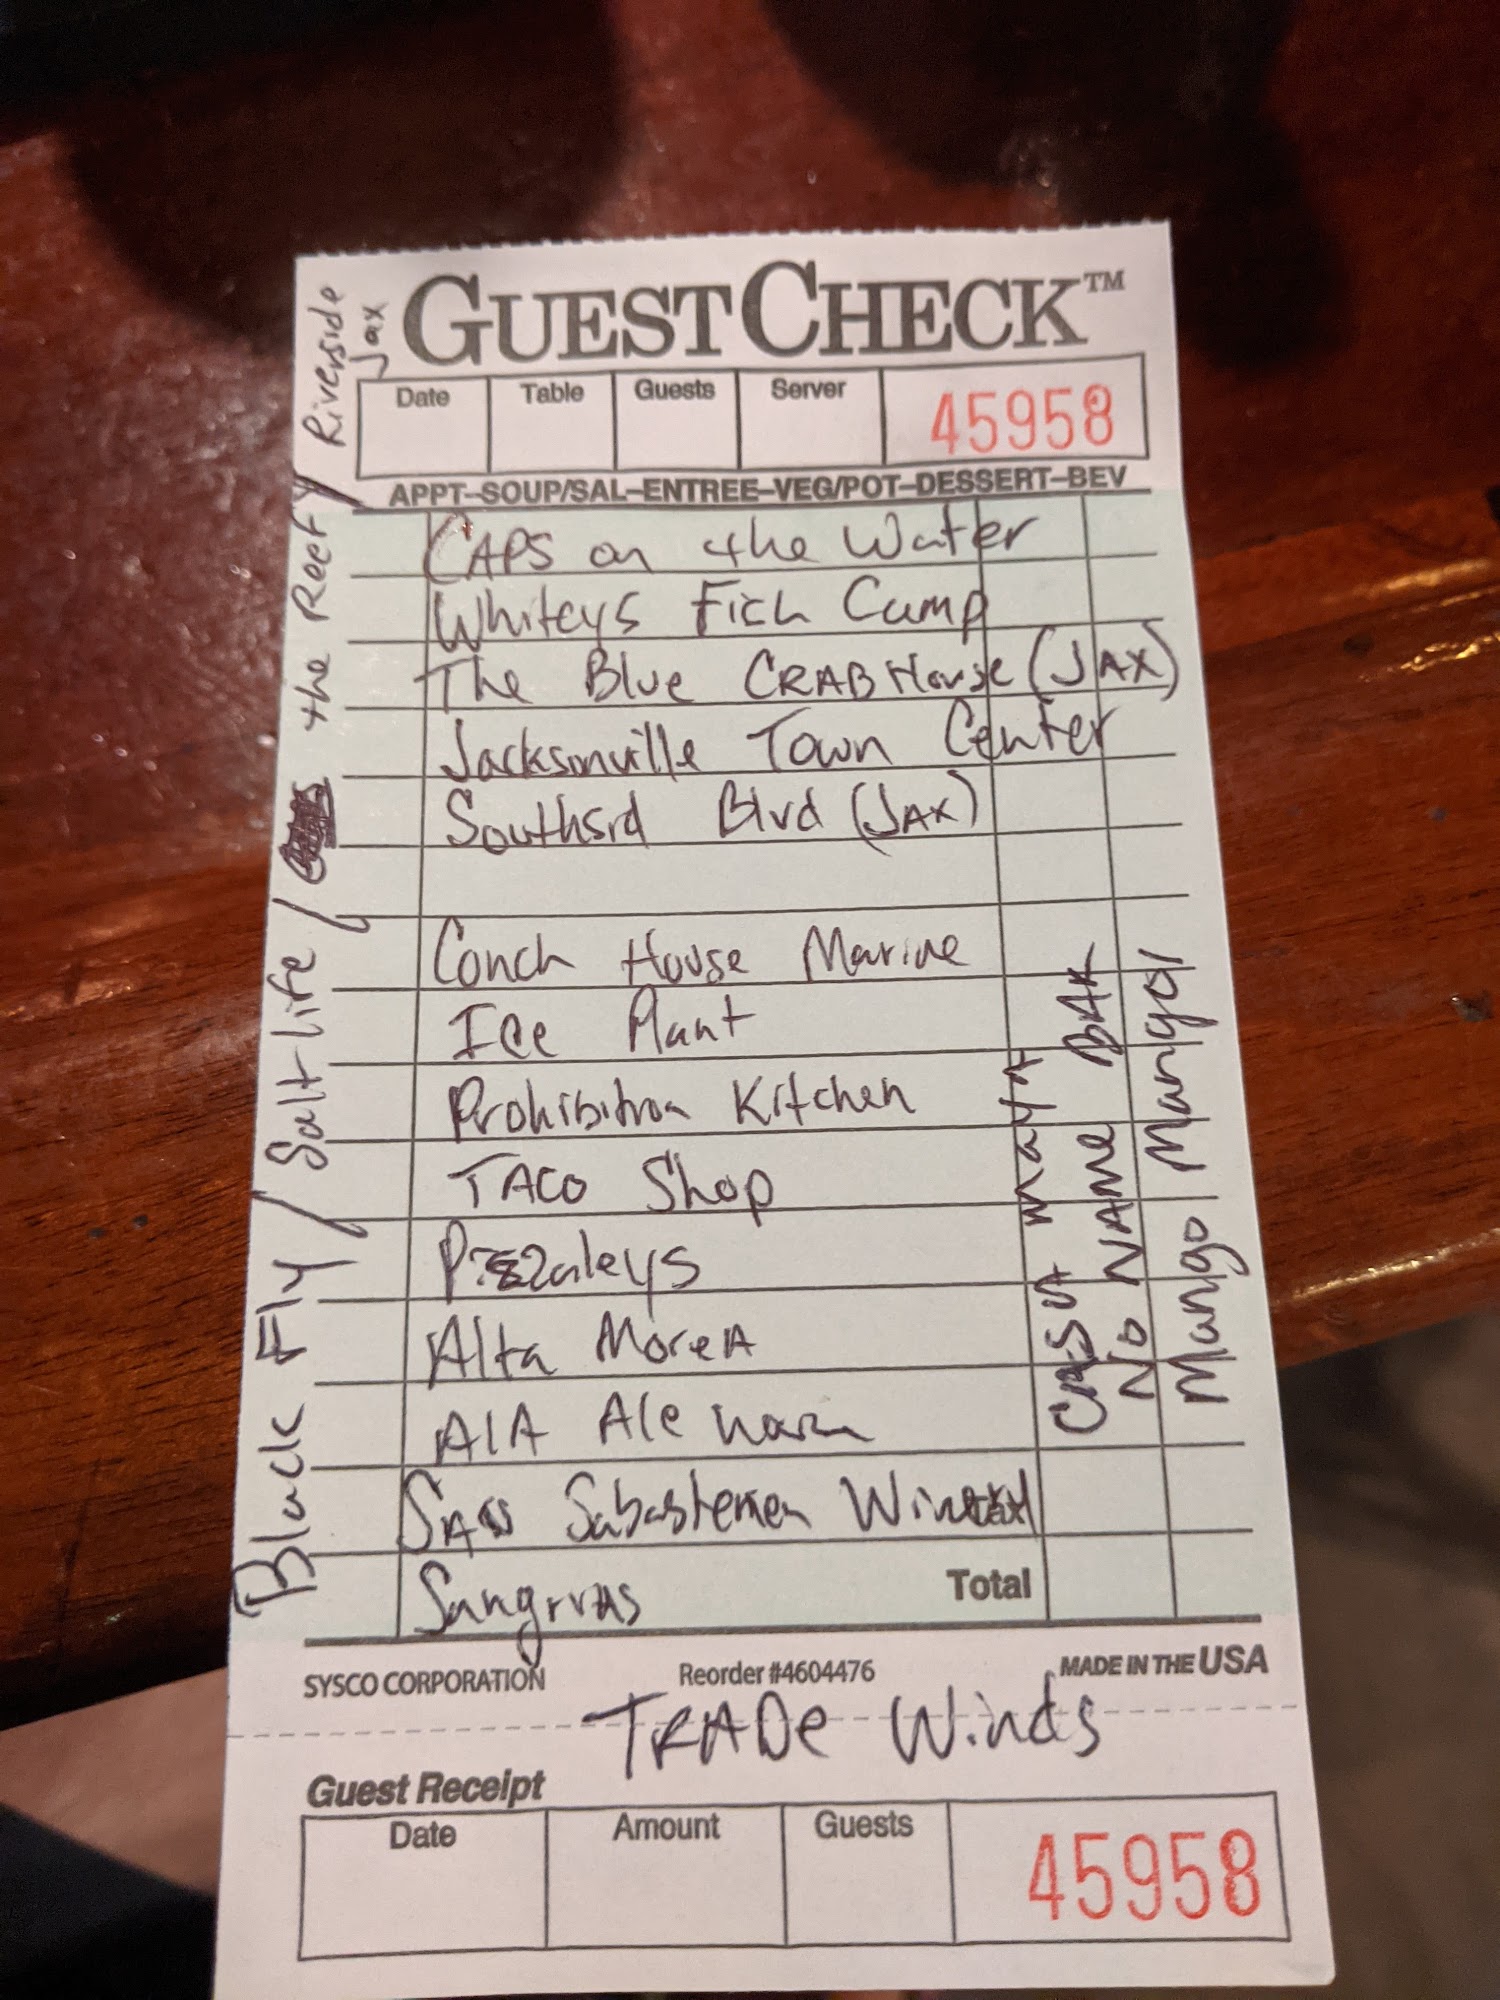 GUESTCHECK™
Date Table Guests Server 45958
APPT–SOUP/SAL–ENTREE–VEG/POT–DESSERT–BEV
CAPS on the Water
Whiteys Fich Camp
The Blue CRAB House (JAX)
Jacksonville Town Center
Southsrd Blvd (JAX)
Conch House Marine
Ice Plant
Prohibition Kitchen
TACO Shop
Alta MoreA
A1A Ale
SAN Winery
Sangrias
Total
SYSCO CORPORATION Reorder #4604476 MADE IN THE USA
TRADe Winds
Guest Receipt
Date Amount Guests 45958
Black Fly / Salt life / the Reef / Riverside
Jax
CASA MAYA
No NAMe BAR
Mango Mangos